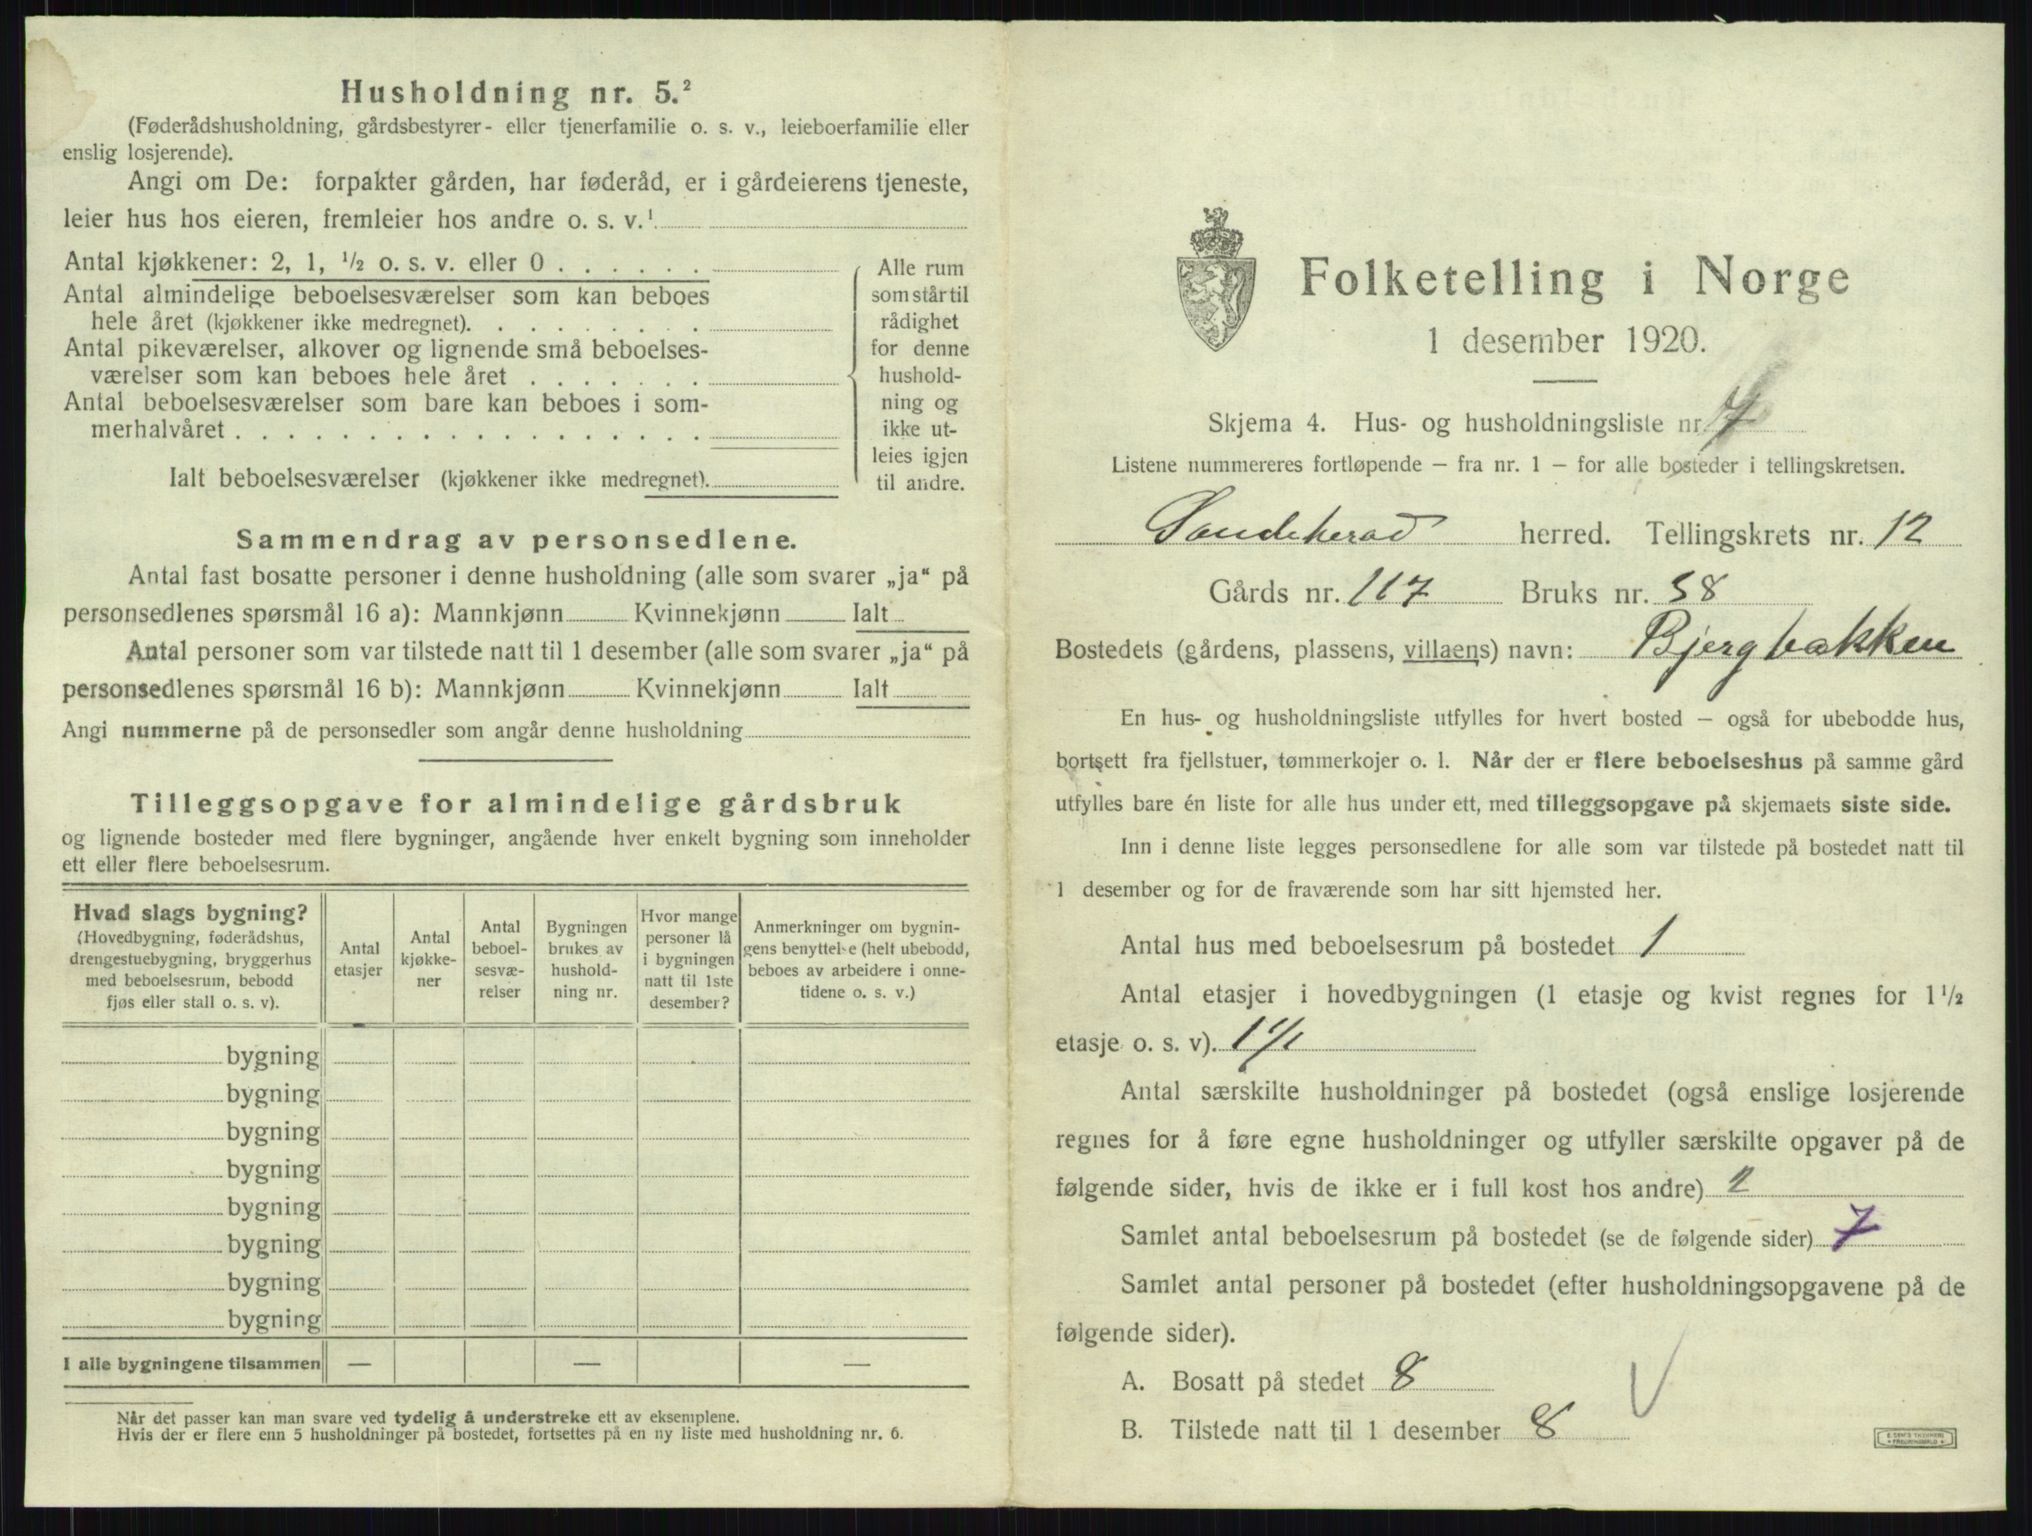 Husholdning nr. 5.²
(Føderådshusholdning, gårdsbestyrer- eller tjenerfamilie o. s. v., leieboerfamilie eller
enslig losjerende).
Angi om De: forpakter gården, har føderåd, er i gårdeierens tjeneste,
leier hus hos eieren, fremleier hos andre o. s. v.¹
Antal kjøkkener: 2, 1, ½ o. s. v. eller 0 . . . . . .
Antal almindelige beboelsesværelser som kan beboes
hele året (kjøkkener ikke medregnet). . . . . . . . .
Antal pikeværelser, alkover og lignende små beboelses-
værelser som kan beboes hele året . . . . . . .
Antal beboelsesværelser som bare kan beboes i som-
merhalvåret . . . . . . . . . . . . . . . . . .
Ialt beboelsesværelser (kjøkkener ikke medregnet).
Alle rum
som står til
rådighet
for denne
hushold-
ning og
ikke ut-
leies igjen
til andre.
Sammendrag av personsedlene.
Antal fast bosatte personer i denne husholdning (alle som svarer „ja“ på
personsedlenes spørsmål 16 a): Mannkjønn Kvinnekjønn Ialt
Antal personer som var tilstede natt til 1 desember (alle som svarer „ja“ på
personsedlenes spørsmål 16 b): Mannkjønn Kvinnekjønn Ialt
Angi nummerne på de personsedler som angår denne husholdning
Tilleggsopgave for almindelige gårdsbruk
og lignende bosteder med flere bygninger, angående hver enkelt bygning som inneholder
ett eller flere beboelsesrum.
Hvad slags bygning?
(Hovedbygning, føderådshus,
drengestuebygning, bryggerhus
med beboelsesrum, bebodd
fjøs eller stall o. s. v).
Antal
etasjer
Antal
kjøkke-
ner
Antal
beboel-
sesvæ-
relser
Bygningen
brukes av
hushold-
ning nr.
Hvor mange
personer lå
i bygningen
natt til 1ste
desember?
Anmerkninger om bygnin-
gens benyttelse (helt ubebodd,
beboes av arbeidere i onne-
tidene o. s. v.)
bygning
bygning
bygning
bygning
bygning
bygning
bygning
bygning
I alle bygningene tilsammen — — —
Når det passer kan man svare ved tydelig å understreke ett av eksemplene.
Hvis der er flere enn 5 husholdninger på bostedet, fortsettes på en ny liste med husholdning nr. 6.
Folketelling i Norge
1 desember 1920.
Skjema 4. Hus- og husholdningsliste nr. 7
Listene nummereres fortløpende – fra nr. 1 – for alle bosteder i tellingskretsen.
Sandeherad herred. Tellingskrets nr. 12
Gårds nr. 117 Bruks nr. 38
Bostedets (gårdens, plassens, villaens) navn: Bjergbakken
En hus- og husholdningsliste utfylles for hvert bosted – også for ubebodde hus,
bortsett fra fjellstuer, tømmerkojer o. l. Når der er flere beboelseshus på samme gård
utfylles bare én liste for alle hus under ett, med tilleggsopgave på skjemaets siste side.
Inn i denne liste legges personsedlene for alle som var tilstede på bostedet natt til
1 desember og for de fraværende som har sitt hjemsted her.
Antal hus med beboelsesrum på bostedet 1
Antal etasjer i hovedbygningen (1 etasje og kvist regnes for 1½
etasje o. s. v).
Antal særskilte husholdninger på bostedet (også enslige losjerende
regnes for å føre egne husholdninger og utfyller særskilte opgaver på de
følgende sider, hvis de ikke er i full kost hos andre) 2
Samlet antal beboelsesrum på bostedet (se de følgende sider) 7
Samlet antal personer på bostedet (efter husholdningsopgavene på de
følgende sider).
A. Bosatt på stedet 8
B. Tilstede natt til 1 desember 8